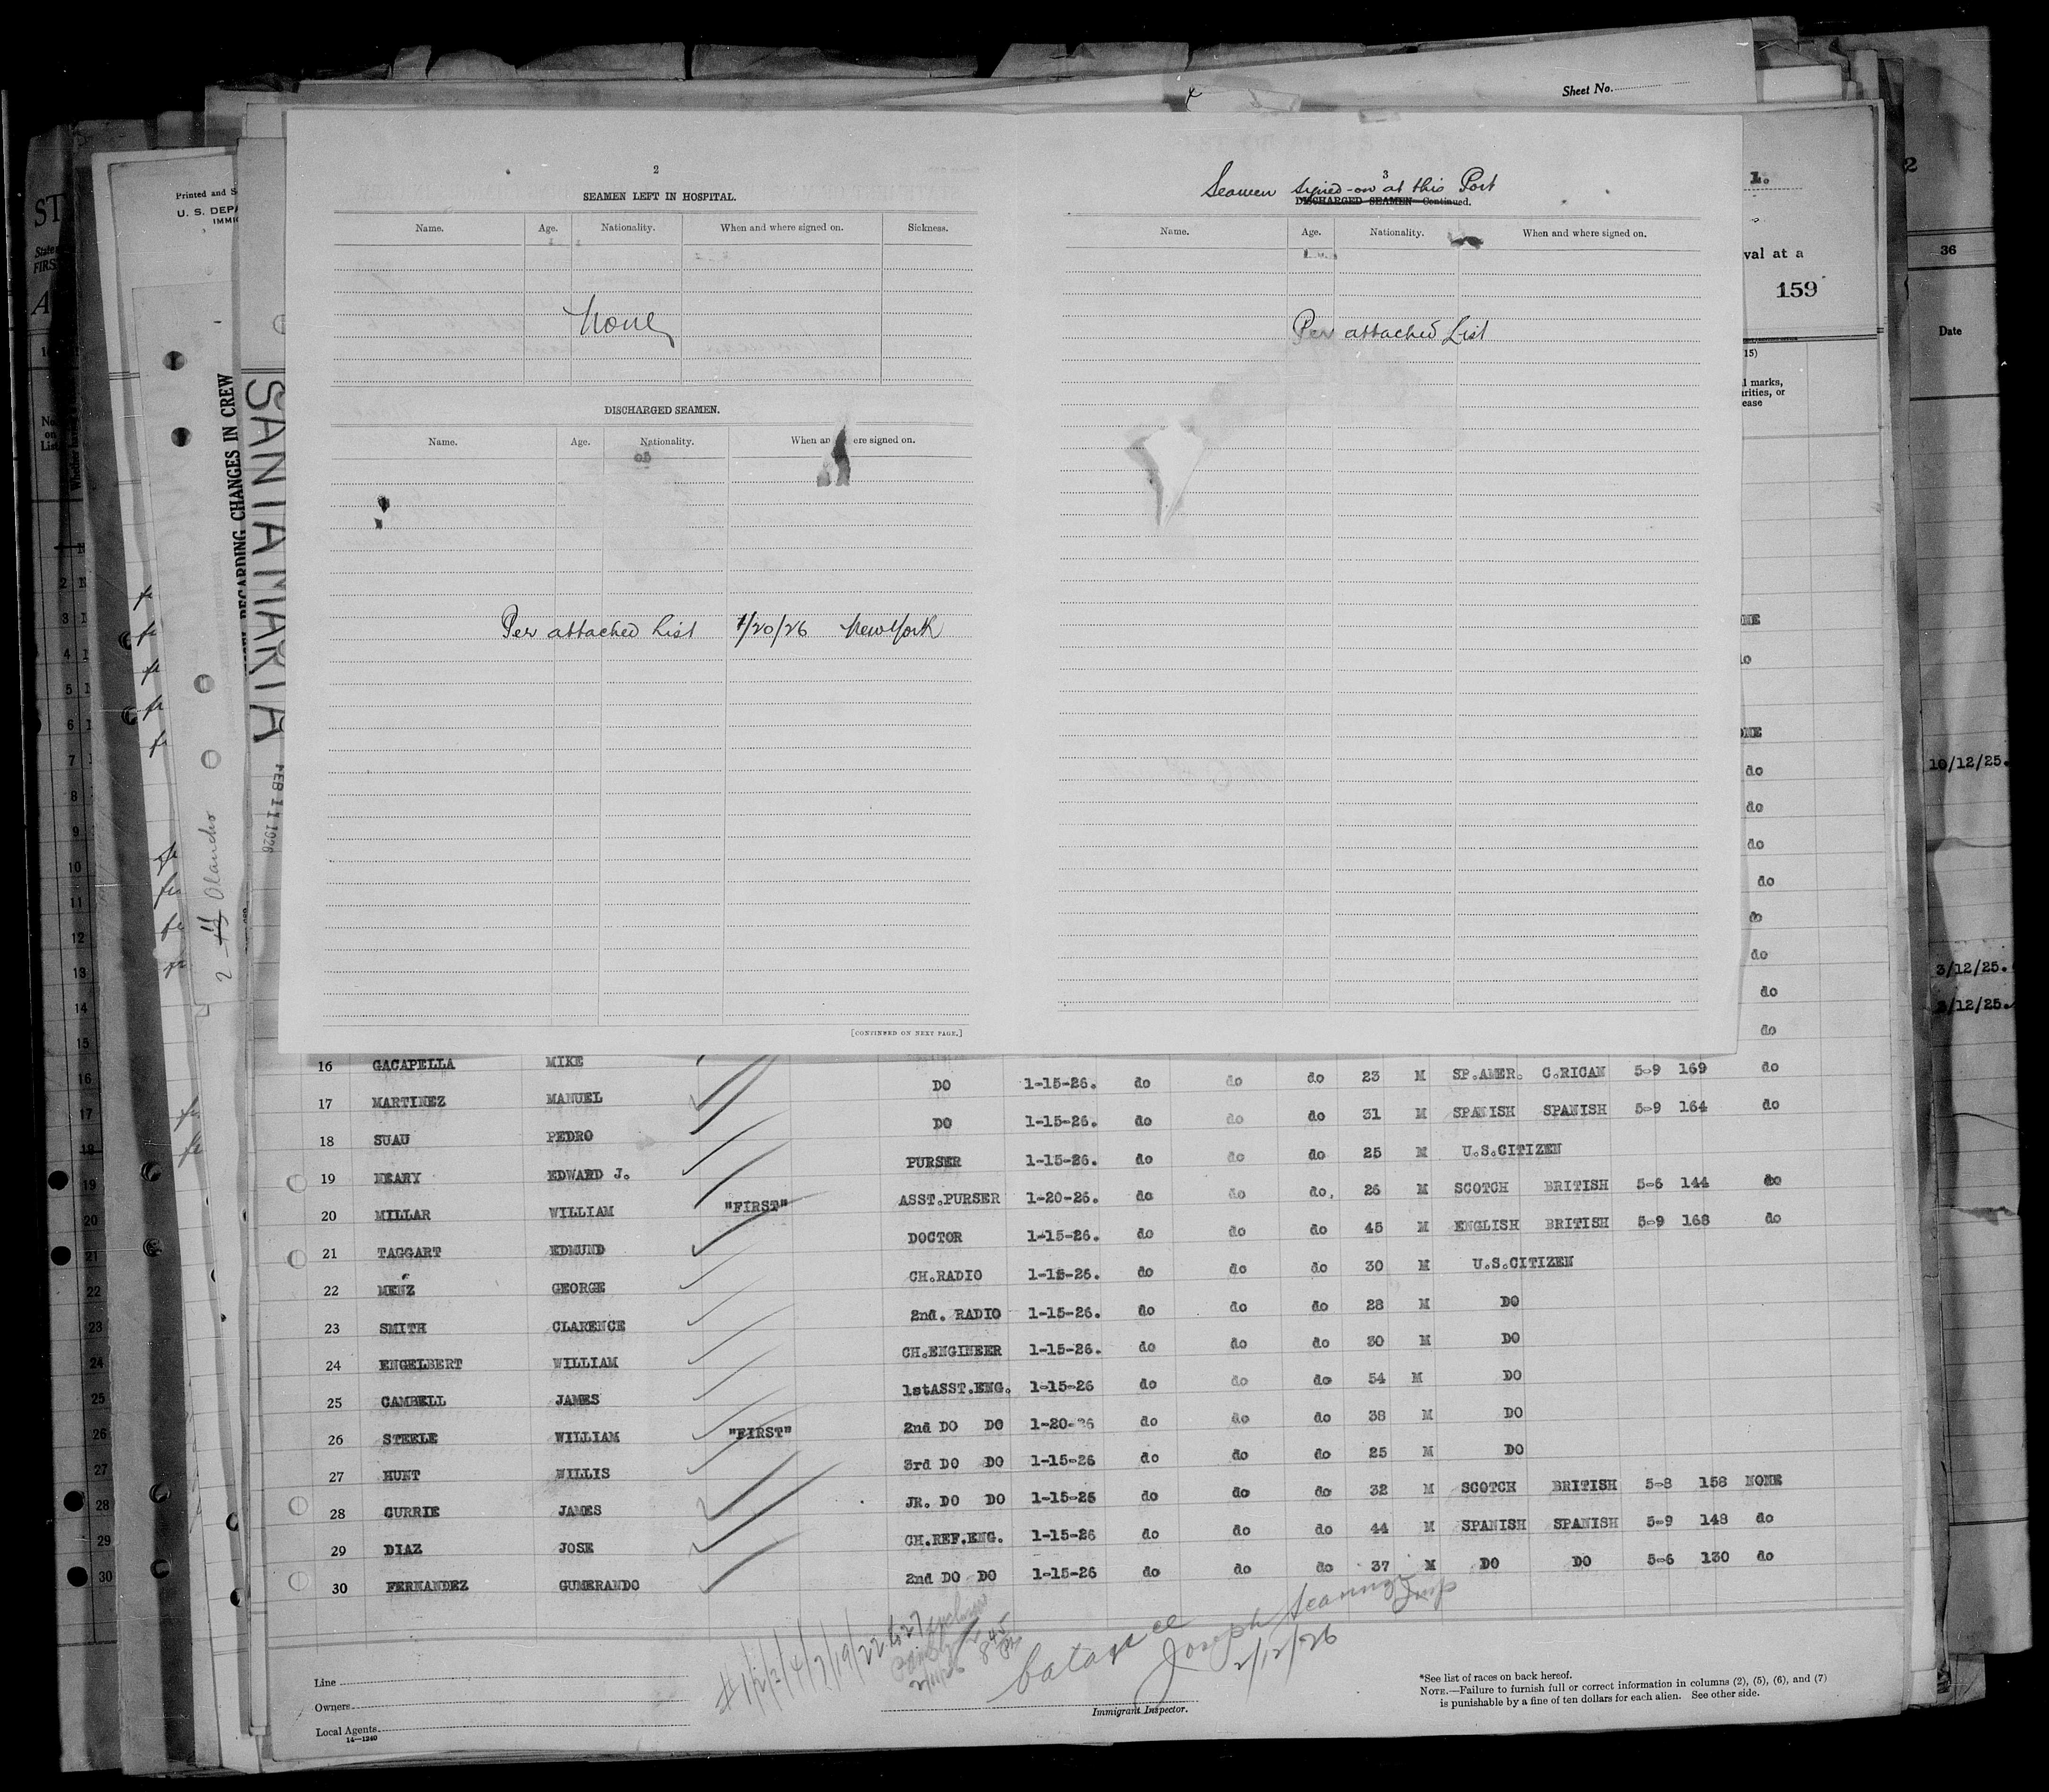 Sheet No.
2
SEAMEN LEFT IN HOSPITAL.
Name. Age. Nationality. When and where signed on. Sickness.
None
DISCHARGED SEAMEN.
Name. Age. Nationality. When an ere signed on.
Per attached List 1/20/26 New York
[CONTINUED ON NEXT PAGE.]
3
Seamen signed-on at this Port
DISCHARGED SEAMEN—Continued.
Name. Age. Nationality. When and where signed on.
Per attached List
Printed and S
U. S. DEPA
IMMIG
REGARDING CHANGES IN CREW
SANTA MARTA
FEB 11 1926
2 Olancho
1.
val at a
159
15)
l marks,
arities, or
ease
36
Date
10/12/25.
3/12/25.
3/12/25.
16 GACAPELLA MIKE DO 1-15-26. do do do 23 M SP.AMER. C.RICAN 5-9 169 do
17 MARTINEZ MANUEL DO 1-15-26. do do do 31 M SPANISH SPANISH 5-9 164 do
18 SUAU PEDRO PURSER 1-15-26. do do do 25 M U.S.CITIZEN
19 NEARY EDWARD J. ASST.PURSER 1-20-26. do do do. 26 M SCOTCH BRITISH 5-6 144 do
20 MILLAR WILLIAM "FIRST" DOCTOR 1-15-26. do do do 45 M ENGLISH BRITISH 5-9 168 do
21 TAGGART EDMUND CH.RADIO 1-15-26. do do do 30 M U.S.CITIZEN
22 MENZ GEORGE 2nd. RADIO 1-15-26. do do do 28 M DO
23 SMITH CLARENCE CH.ENGINEER 1-15-26. do do do 30 M DO
24 ENGELBERT WILLIAM 1stASST.ENG. 1-15-26 do do do 54 M DO
25 CAMBELL JAMES 2nd DO DO 1-20-26 do do do 38 M DO
26 STEELE WILLIAM "FIRST" 3rd DO DO 1-15-26 do do do 25 M DO
27 HUNT WILLIS JR. DO DO 1-15-26 do do do 32 M SCOTCH BRITISH 5-8 158 NONE
28 CURRIE JAMES CH.REF.ENG. 1-15-26 do do do 44 M SPANISH SPANISH 5-9 148 do
29 DIAZ JOSE 2nd DO DO 1-15-26 do do do 37 M DO DO 5-6 130 do
30 FERNANDEZ GUMERANDO
Joseph
2/12/26
Line
Owners
Local Agents
14—1240
Immigrant Inspector.
*See list of races on back hereof.
NOTE.—Failure to furnish full or correct information in columns (2), (5), (6), and (7)
is punishable by a fine of ten dollars for each alien. See other side.